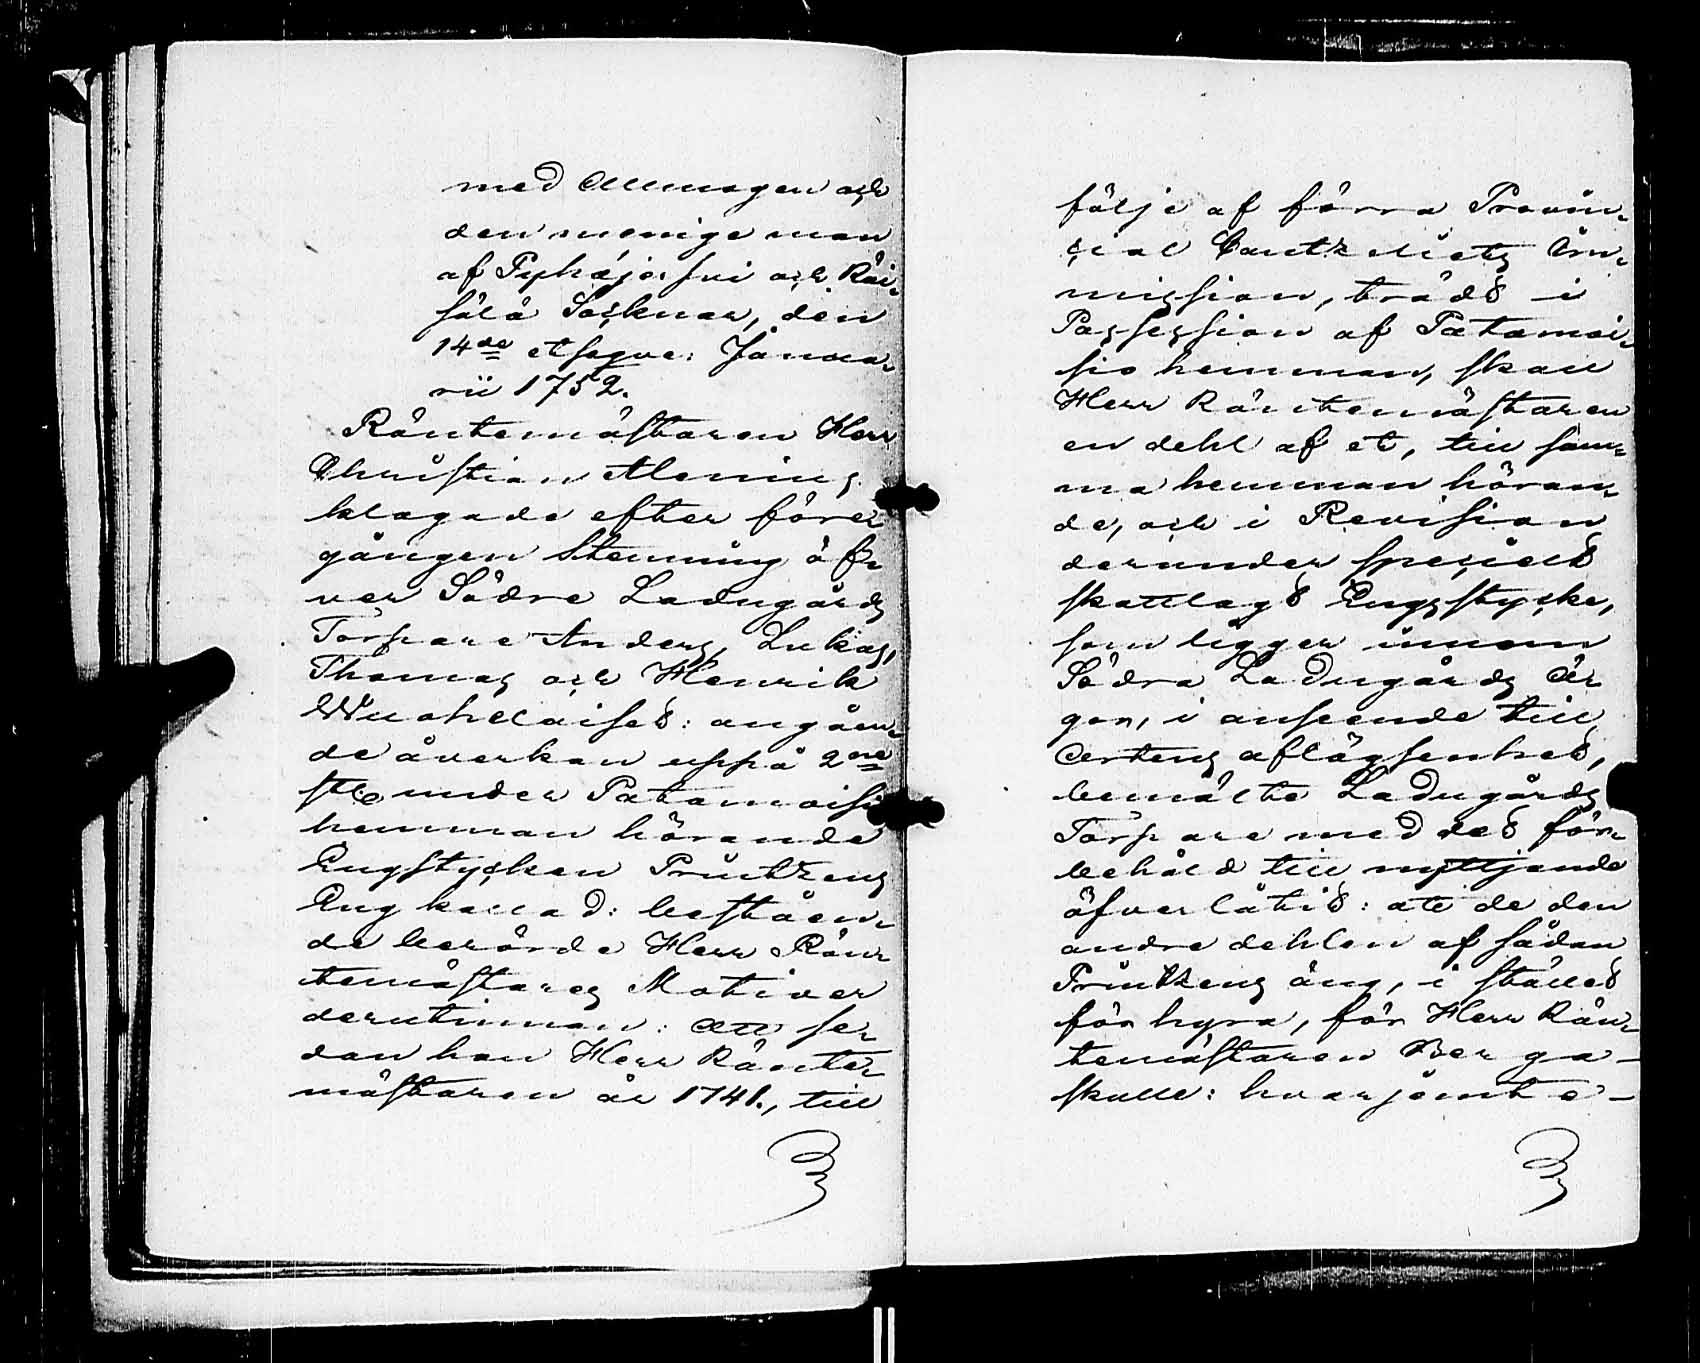 med Allmogen och
den menige man
af Pyhäjo: Jvi och Rei-
sälä Socknar, den
14de et sequ: Janua-
rii 1752.
Räntemästaren Herr
Christian Alenius
klagade efter före-
gången Stemning öf-
ver Södre Ladugårds
Torpare Anders, Lukas,
Thomas och Henrik
Wuohelaiset: angåen-
de åverkan uppå 2ne
st: under Patamoisi
hemman hörande
Engstycken Printzens
Eng kallad: beståen-
de berörde Herr Rän-
temästares Motiver
derutinnan: att se-
dan han Herr Ränte-
mästaren år 1741., till
följe af förra Provin-
cial Cantzliets Im-
mission, trädt i
Possession af Patamoi-
sio hemman, skall
Herr Räntemästaren
en dehl af et, till sam-
ma hemman höran-
de, och i Revision
derunder speciellt
skattlagt Engsstycke,
som ligger innom
Södra Ladugårds Äe-
gor, i anseende till
Ortens aflägsenhet,
bemälte Ladugårds
Torpare med det för-
behåld till nyttjande
öfverlåtit: att de den
andre dehlen af sådan
Printzens äng, i stället
för hyra, för Herr Rän-
temästaren Berga
skulle: hvarjemte